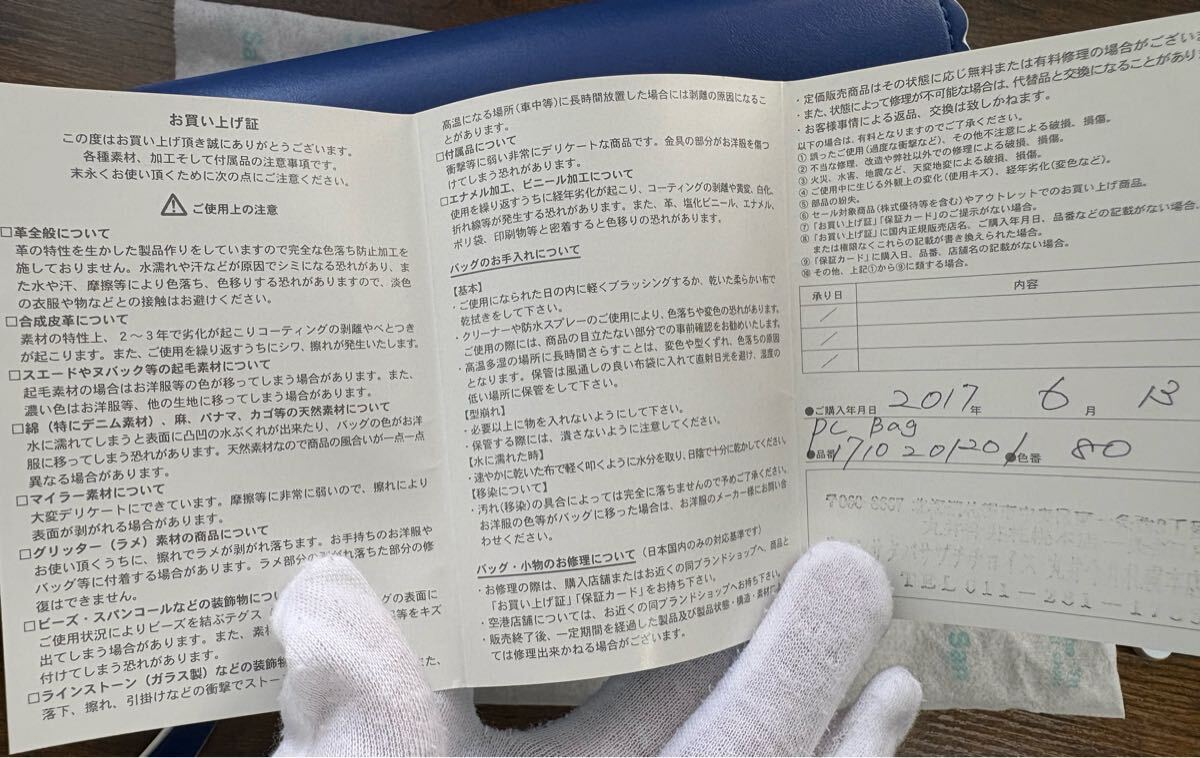 お買い上げ証
この度はお買い上げ頂き誠にありがとうございます。
各種素材、加工そして付属品の注意事項です。
末永くお使い頂くために次の点にご注意ください。
ご使用上の注意
□革全般について
革の特性を生かした製品作りをしていますので完全な色落ち防止加工を
施しておりません。水濡れや汗などが原因でシミになる恐れがあり、ま
た水や汗、摩擦等により色落ち、色移りする恐れがありますので、淡色
の衣服や物などとの接触はお避けください。
□合成皮革について
素材の特性上、２～３年で劣化が起こりコーティングの剥離やべとつき
が起こります。また、ご使用を繰り返すうちにシワ、擦れが発生いたします。
□スエードやヌバック等の起毛素材について
起毛素材の場合はお洋服等の色が移ってしまう場合があります。また、
濃い色はお洋服等、他の生地に移ってしまう場合があります。
□綿（特にデニム素材）、麻、パナマ、カゴ等の天然素材について
水に濡れてしまうと表面に凸凹の水ぶくれが出来たり、バッグの色がお洋
服に移ってしまう恐れがあります。天然素材なので商品の風合いが一点一点
異なる場合があります。
□マイラー素材について
大変デリケートにできています。摩擦等に非常に弱いので、擦れにより
表面が剥がれる場合があります。
□グリッター（ラメ）素材の商品について
お使い頂くうちに、擦れでラメが剥がれ落ちます。お手持ちのお洋服や
バッグ等に付着する場合があります。ラメ部分の剥がれ落ちた部分の修
復はできません。
□ビーズ・スパンコールなどの装飾物につい
ご使用状況によりビーズを結ぶテグス グの表面に
出てしまう場合があります。また、素材 等をキズ
付けてしまう恐れがあります。
□ラインストーン（ガラス製）などの装飾物
落下、擦れ、引掛けなどの衝撃でストー また、
高温になる場所（車中等）に長時間放置した場合には剥離の原因になるこ
とがあります。
□付属品について
衝撃等に弱い非常にデリケートな商品です。金具の部分がお洋服を傷つ
けてしまう恐れがあります。
□エナメル加工、ビニール加工について
使用を繰り返すうちに経年劣化が起こり、コーティングの剥離や黄変、白化、
折れ線等が発生する恐れがあります。また、革、塩化ビニール、エナメル、
ポリ袋、印刷物等と密着すると色移りの恐れがあります。
バッグのお手入れについて
【基本】
・ご使用になられた日の内に軽くブラッシングするか、乾いた柔らかい布で
乾拭きをして下さい。
・クリーナーや防水スプレーのご使用により、色落ちや変色の恐れがあります。
ご使用の際には、商品の目立たない部分での事前確認をお勧めいたします。
・高温多湿の場所に長時間さらすことは、変色や型くずれ、色落ちの原因
となります。保管は風通しの良い布袋に入れて直射日光を避け、湿度の
低い場所に保管をして下さい。
【型崩れ】
・必要以上に物を入れないようにして下さい。
・保管する際には、潰さないように注意してください。
【水に濡れた時】
・速やかに乾いた布で軽く叩くように水分を取り、日陰で十分に乾かしてください。
【移染について】
・汚れ（移染）の具合によっては完全に落ちませんので予めご了承ください。
お洋服の色等がバッグに移った場合は、お洋服のメーカー様にお問い合
わせください。
バッグ・小物のお修理について（日本国内のみの対応基準です）
・お修理の際は、購入店舗またはお近くの同ブランドショップへ、商品と
「お買い上げ証」「保証カード」をお持ち下さい。
・空港店舗については、お近くの同ブランドショップへお持ち下さい。
・販売終了後、一定期間を経過した製品及び製品状態・構造・素材
ては修理出来かねる場合がございます。
・定価販売商品はその状態に応じ無料または有料修理の場合がござい
・また、状態によって修理が不可能な場合は、代替品と交換になることがあり
・お客様事情による返品、交換は致しかねます。
以下の場合は、有料となりますのでご了承ください。
①誤ったご使用（過度な衝撃など）、その他不注意による破損、損傷。
②不当な修理、改造や弊社以外での修理による破損、損傷。
③火災、水害、地震など、天変地変による破損、損傷。
④ご使用中に生じる外観上の変化（使用キズ）、経年劣化（変色など）。
⑤部品の紛失。
⑥セール対象商品（株式優待等を含む）やアウトレットでのお買い上げ商品。
⑦「お買い上げ証」「保証カード」のご提示がない場合。
⑧「お買い上げ証」に国内正規販売店名、ご購入年月日、品番などの記載がない場合、
または権限なくこれらの記載が書き換えられた場合。
⑨「保証カード」に購入日、品番、店舗名の記載がない場合。
⑩その他、上記①から⑨に類する場合。
承り日 内容
／
／
／
●ご購入年月日 2017年 6月 13
PC Bag
●品番 1710 20120 1 ●色番 80